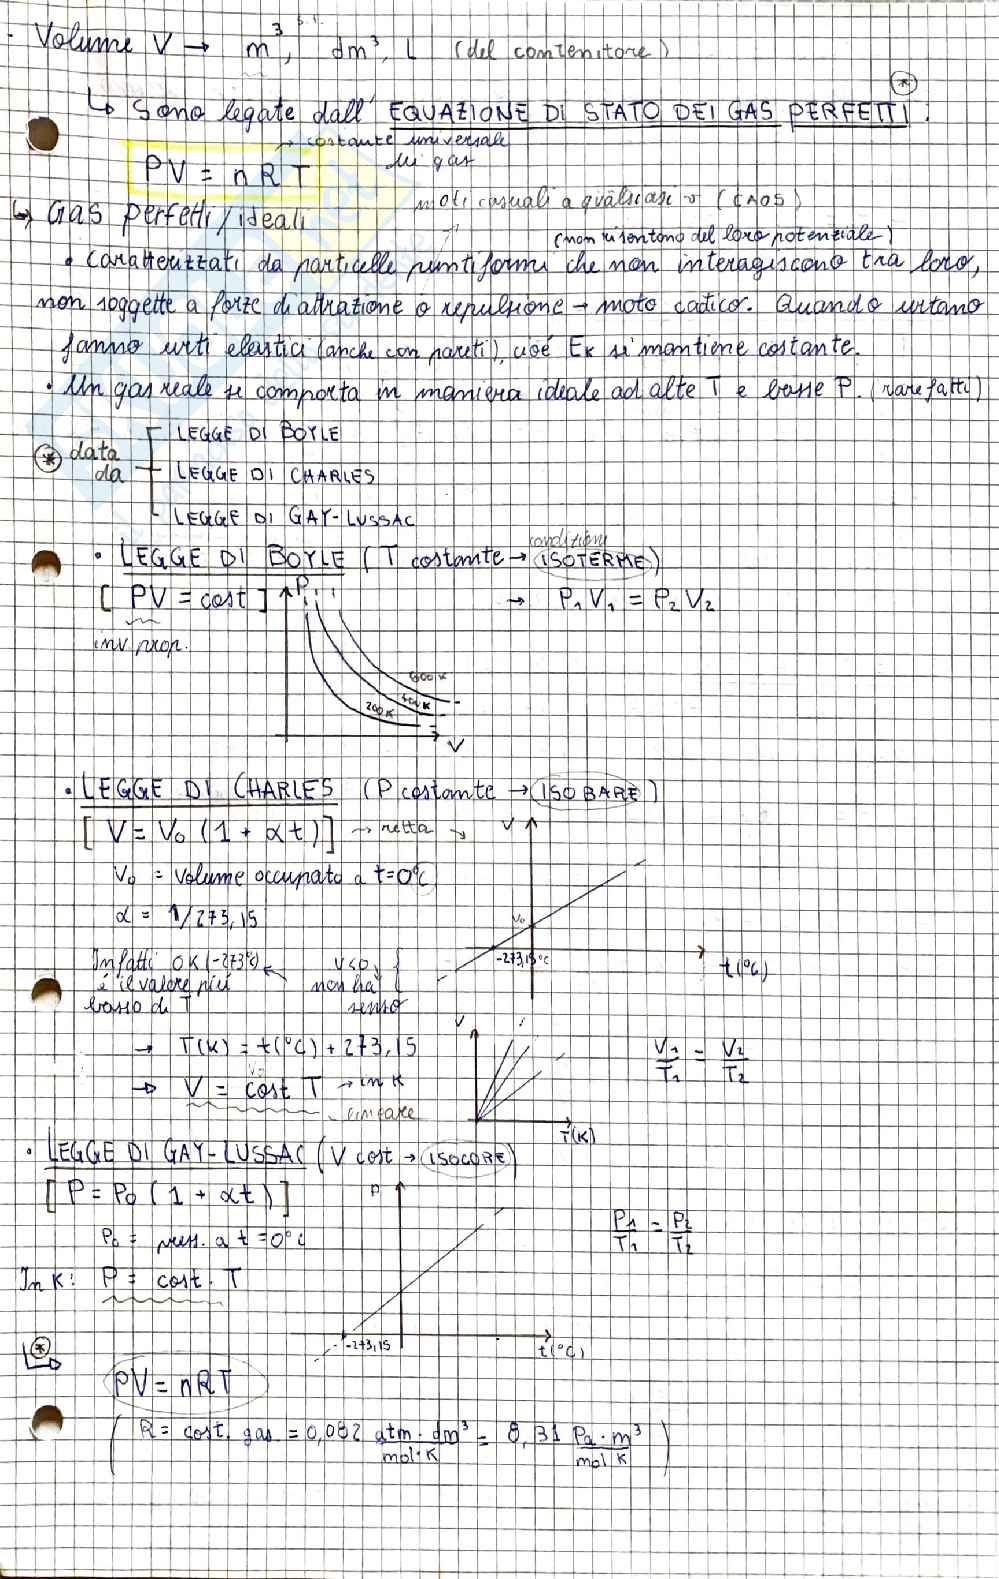 · Volume V → m³, dm³, L (del contenitore)
S.I.
↳ Sono legate dall' EQUAZIONE DI STATO DEI GAS PERFETTI. *
→ costante universale
dei gas
PV = nRT
↳ Gas perfetti/ideali
moti casuali a qualsiasi v (CAOS)
(non risentono del loro potenziale)
• Caratterizzati da particelle puntiformi che non interagiscono tra loro,
non soggette a forze di attrazione o repulsione → moto caotico. Quando urtano
fanno urti elastici (anche con pareti), cioé Ek si mantiene costante.
• Un gas reale si comporta in maniera ideale ad alte T e basse P. (rarefatti)
* data da
LEGGE DI BOYLE
LEGGE DI CHARLES
LEGGE DI GAY-LUSSAC
condizioni
• LEGGE DI BOYLE (T costante → ISOTERME)
[PV = cost] → P₁V₁ = P₂V₂
inv. prop.
P
600 K
400 K
200 K
V
• LEGGE DI CHARLES (P costante → ISOBARE)
[V = V₀ (1 + αt)] → retta
V
V₀ = volume occupato a t=0°C
α = 1/273,15
V₀
-273,15°C
t(°C)
Infatti 0K (-273°C) ← V<0, non ha senso
é il valore più
basso di T
→ T(K) = t(°C) + 273,15
→ V = cost T → in K
lineare
V
T(K)
V₁/T₁ = V₂/T₂
• LEGGE DI GAY-LUSSAC (V cost → ISOCORE)
[P = P₀ (1 + αt)]
P₀ = press. a t=0°C
In K: P = cost. T
P
-273,15
t(°C)
P₁/T₁ = P₂/T₂
*
↳ PV = nRT
(R = cost. gas = 0,082 atm·dm³/mol·K = 8,31 Pa·m³/mol K)